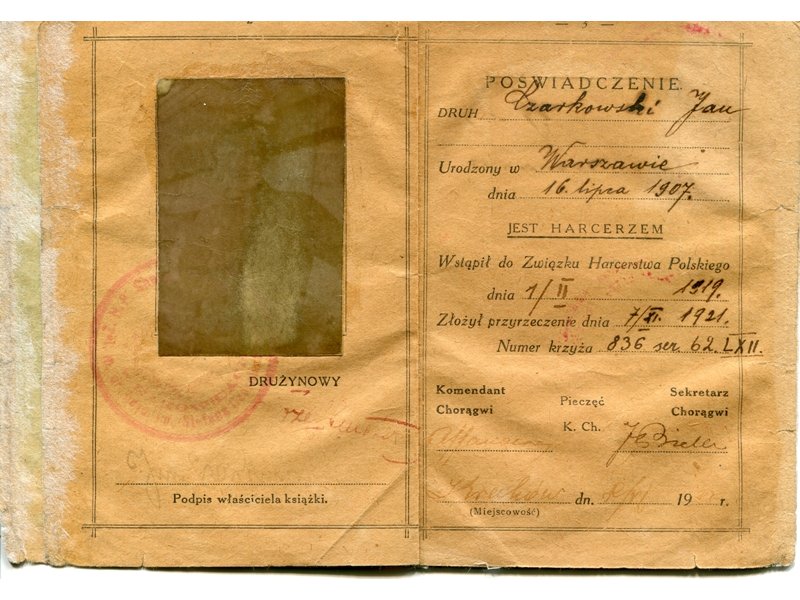 DRUŻYNOWY
Podpis właściciela książki.
— 3 —
POŚWIADCZENIE.
DRUH Czarkowski Jan
Urodzony w Warszawie
dnia 16 lipca 1907.
JEST HARCERZEM
Wstąpił do Związku Harcerstwa Polskiego
dnia 1/II 1919.
Złożył przyrzeczenie dnia 7/XI. 1921.
Numer krzyża 836 ser. 62. LXII.
Komendant Sekretarz
Chorągwi Pieczęć Chorągwi
K. Ch.
dn. 19 r.
(Miejscowość)